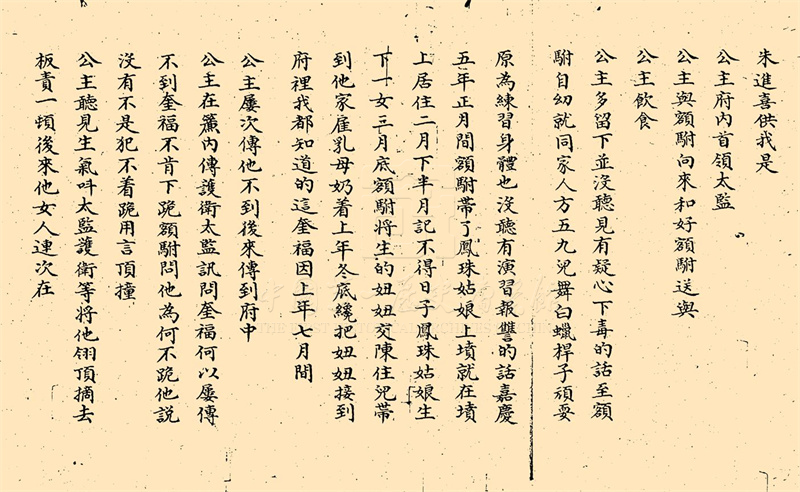 朱進喜供我是
公主府內首領太監
公主與額駙向來和好額駙送與
公主飲食
公主多留下並沒聽見有疑心下毒的話至額
駙自幼就同家人方五九兒舞白蠟桿子頑耍
原為練習身體也沒聽有演習報讐的話嘉慶
五年正月間額駙帶了鳳珠姑娘上墳就在墳
上居住二月下半月記不得日子鳳珠姑娘生
下一女三月底額駙將生的妞妞交陳住兒帶
到他家雇乳母奶着上年冬底纔把妞妞接到
府裡我都知道的這奎福因上年七月間
公主屢次傳他不到後來傳到府中
公主在簾內傳護衛太監訊問奎福何以屢傳
不到奎福不肯下跪額駙問他為何不跪他說
沒有不是犯不着跪用言頂撞
公主聽見生氣呌太監護衛等將他翎頂摘去
板責一頓後來他女人連次在